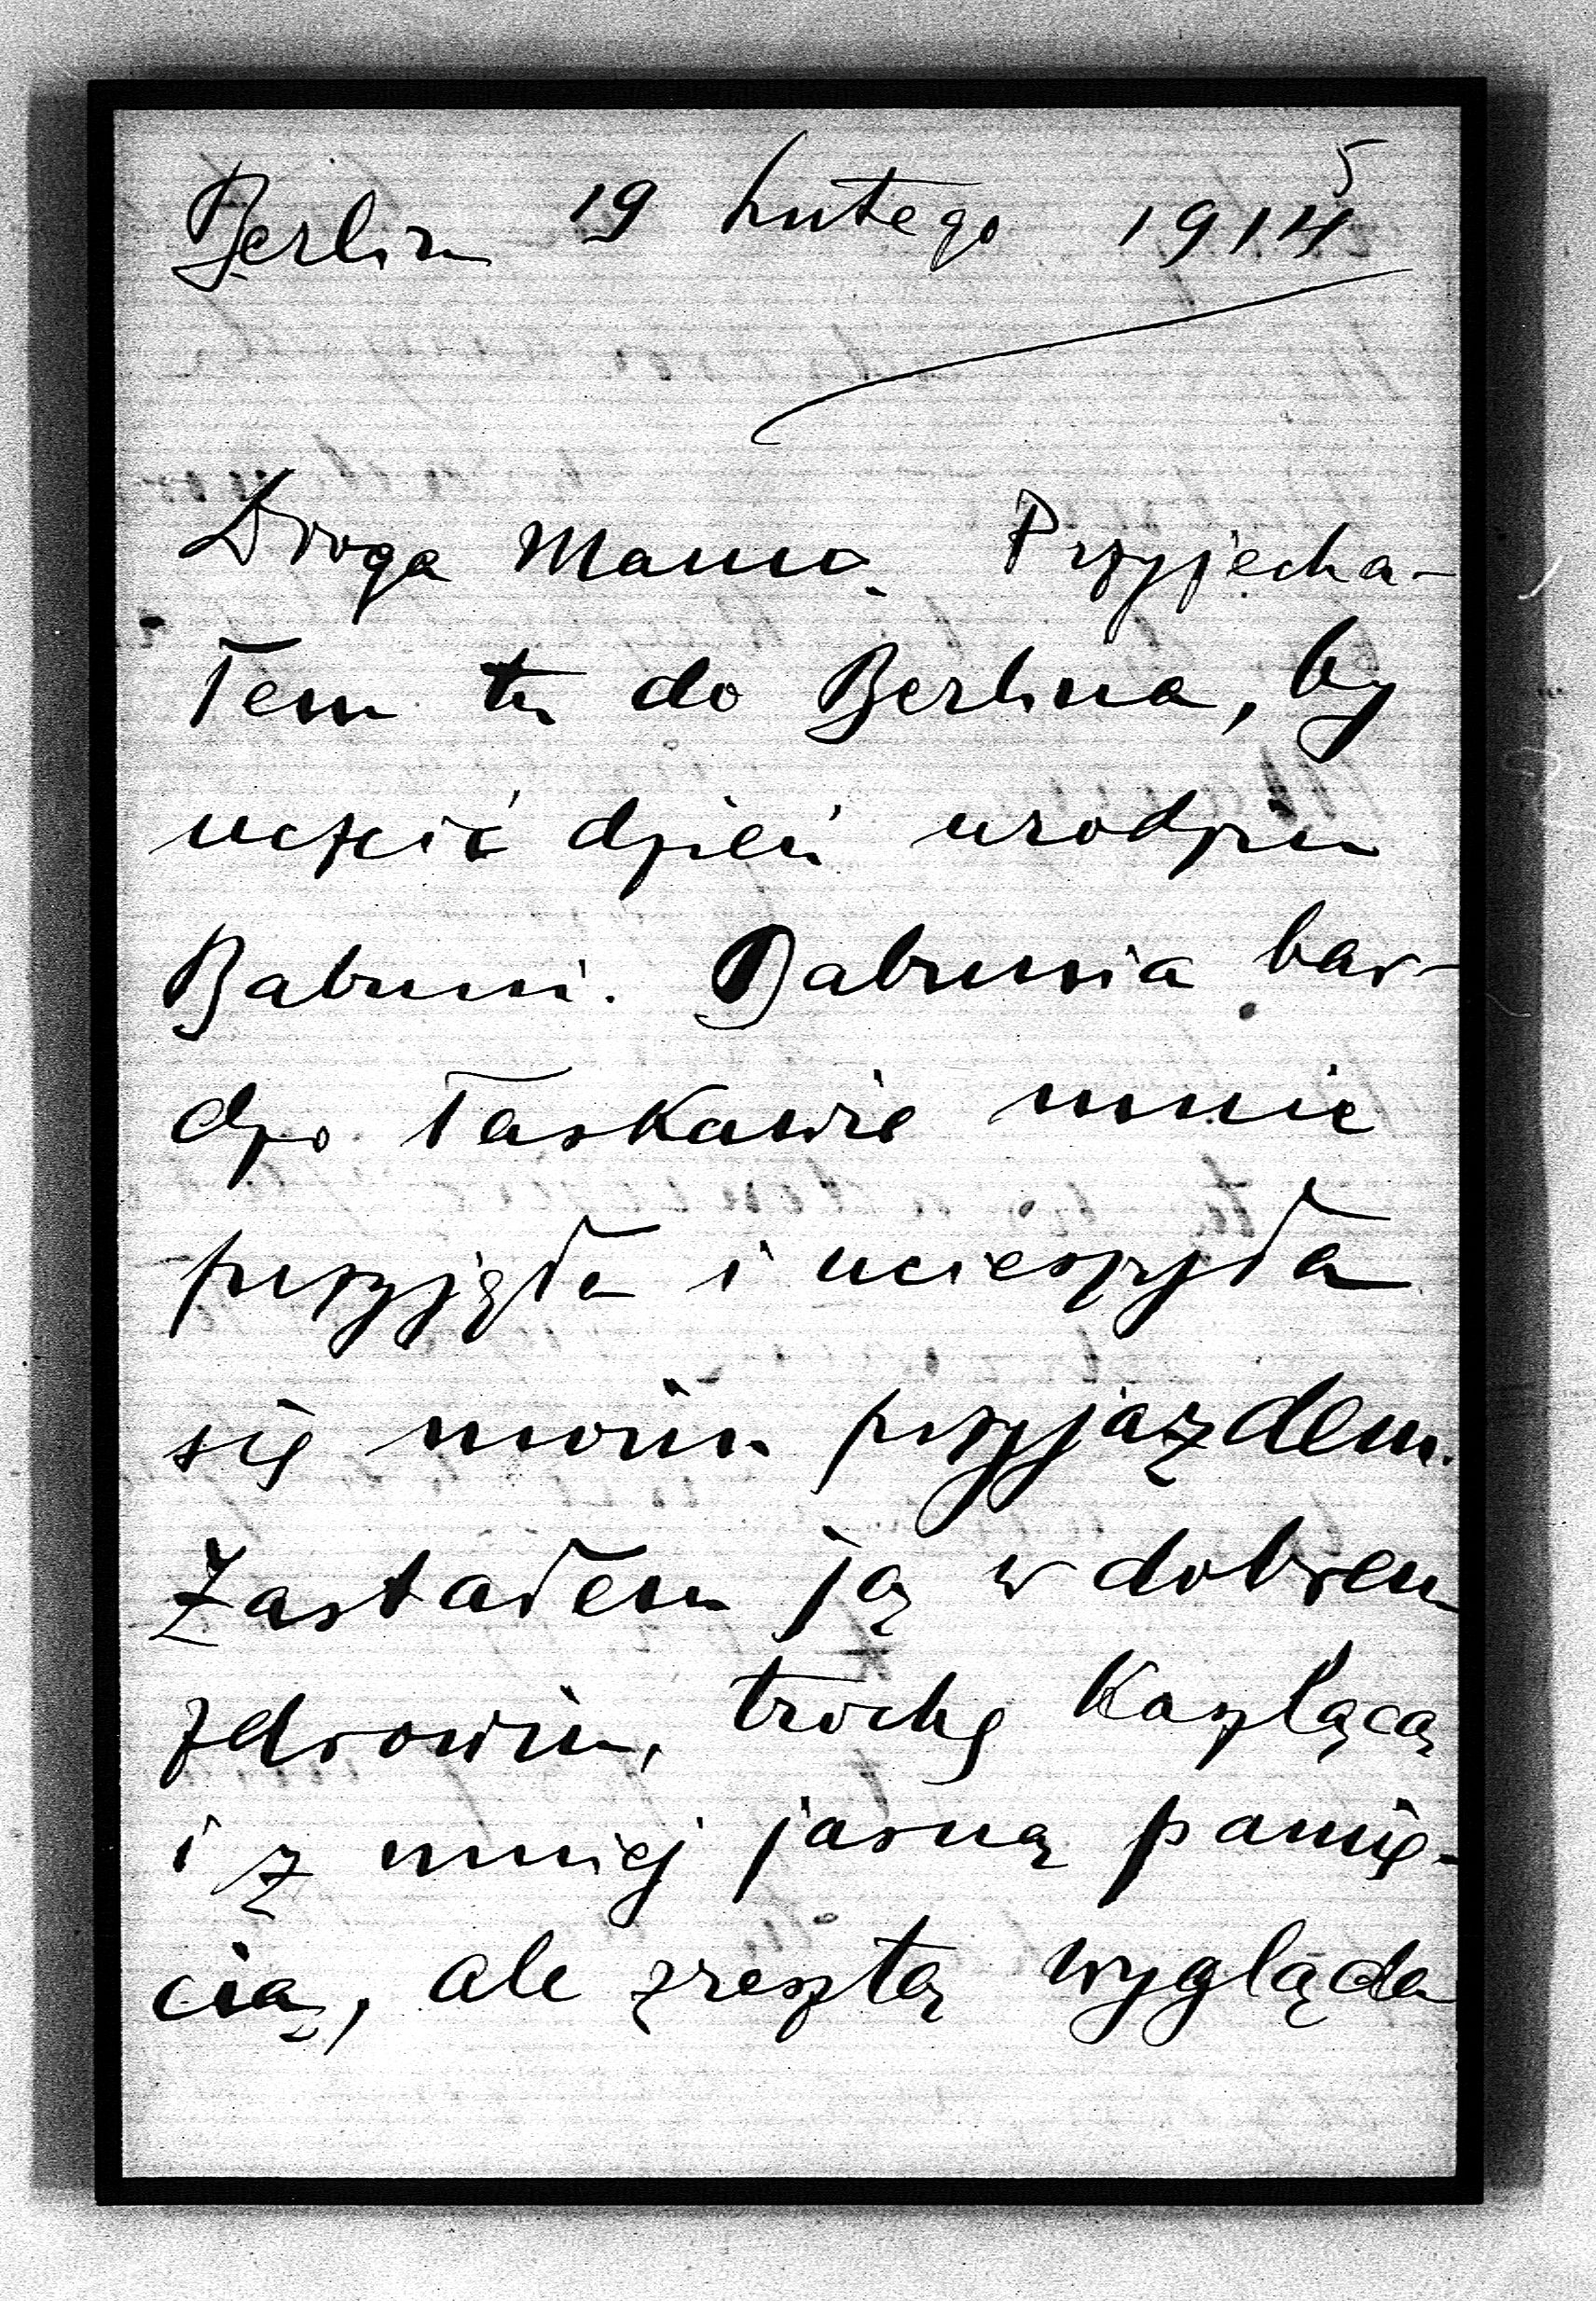 Berlin 19 Lutego 1914 5
Droga Mamo. Przyjecha-
łem tu do Berlina, by
uczcić dzień urodzin
Babuni. Babunia bar-
dzo łaskawie mnie
przyjęła i ucieszyła
się moim przyjazdem.
Zastałem ją w dobrem
zdrowiu, trochę kaszlącą
i z mniej jasną pamię-
cią, ale zresztą wygląda